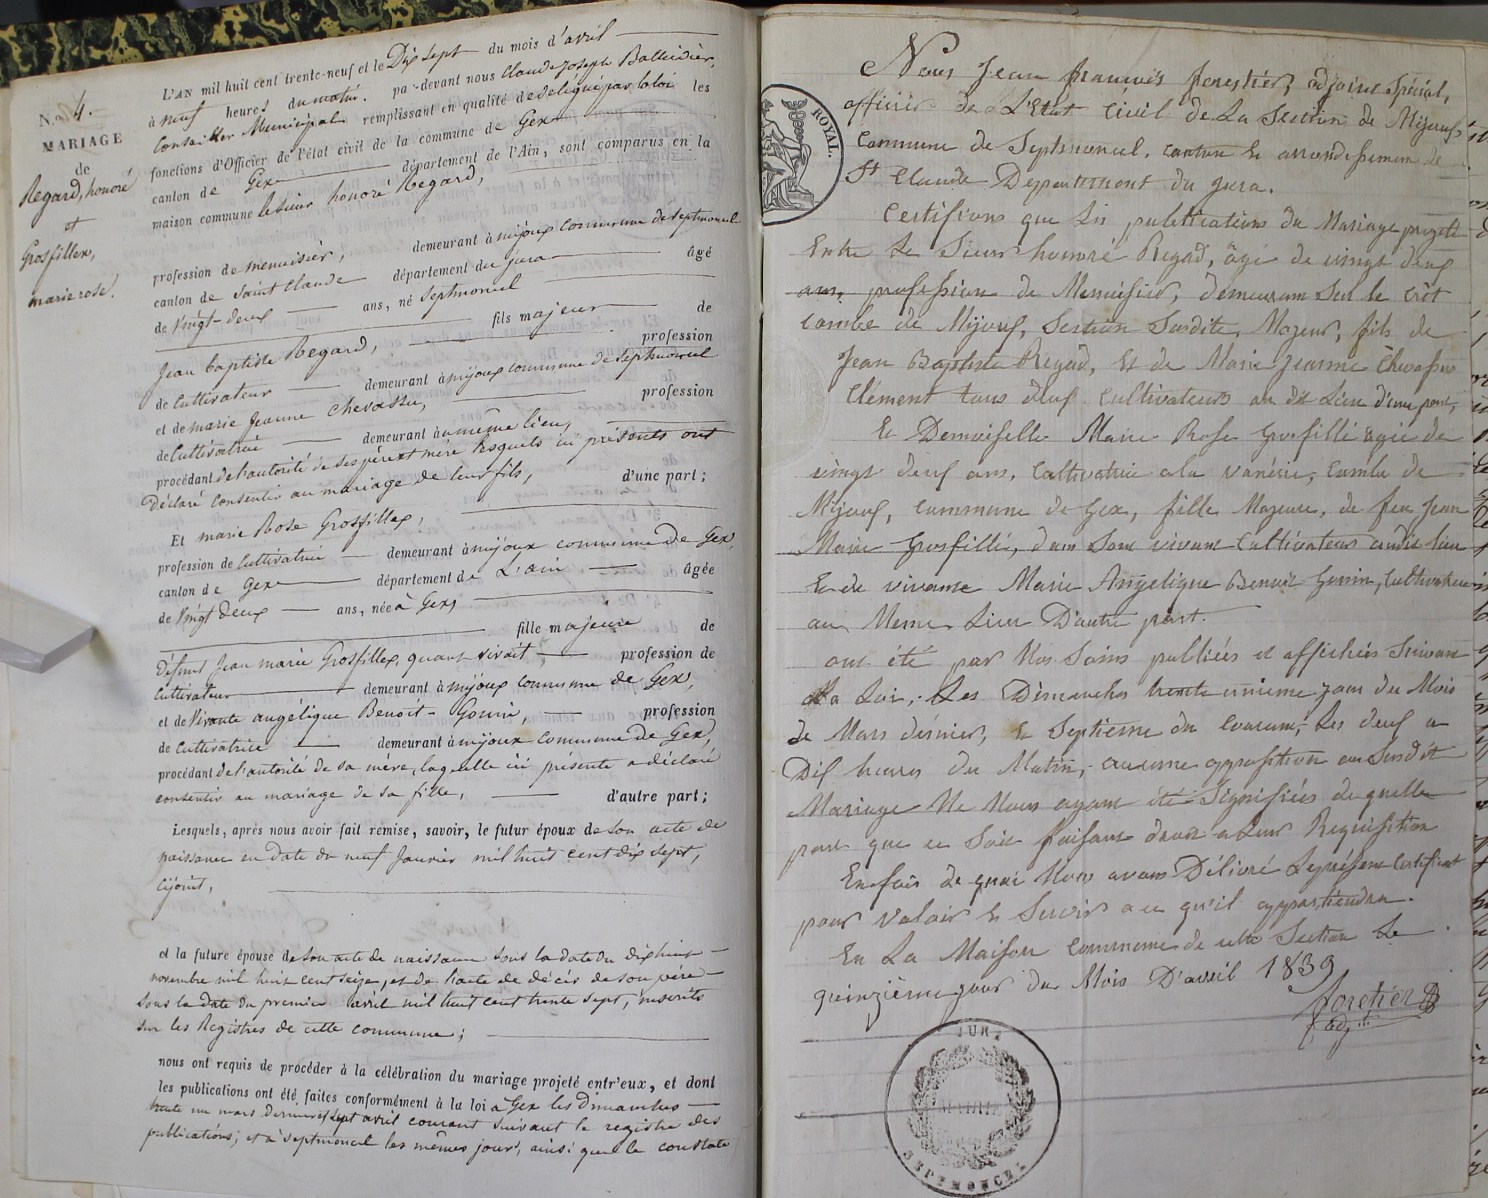 N.o 4.
MARIAGE
de
Regard, honoré
et
Grosfillex,
marie rose.
L'AN mil huit cent trente-neuf et le Dix sept du mois d'avril
à neuf heures du matin. par-devant nous Claude Joseph Balleidier,
Conseiller Municipal remplissant en qualité de délégué par la loi les
fonctions d'Officier de l'état civil de la commune de Gex
canton de Gex département de l'Ain, sont comparus en la
maison commune le sieur honoré Regard,
profession de menuisier, demeurant à mijoux commune de septmoncel
canton de Saint Claude département du jura âgé
de Vingt-deux ans, né Septmoncel
fils majeur de
Jean baptiste Regard, profession
de Cultivateur demeurant à mijoux commune de Septmoncel
et de marie Jeanne Chevassu, profession
de Cultivatrice demeurant au même lieu,
procédant de l'autorité de ses père et mère lesquels ici présents ont
Déclaré consentir au mariage de leur fils, d'une part;
Et marie Rose Grosfillex,
profession de Cultivatrice demeurant à mijoux commune de Gex,
canton de Gex département de L'ain âgée
de Vingt deux ans, née à Gex,
fille majeure de
Défunt Jean marie Grosfillex, quand vivait, profession de
Cultivateur demeurant à mijoux commune de Gex,
et de Vivante angélique Benoit-Gonin, profession
de Cultivatrice demeurant à mijoux commune de Gex,
procédant de l'autorité de sa mère, laquelle ici présente a déclaré
consentir au mariage de sa fille, d'autre part;
Lesquels, après nous avoir fait remise, savoir, le futur époux de son acte de
naissance en date du neuf Janvier mil huit cent dix sept,
cijoint,
et la future épouse de son acte de naissance sous la date du dix huit
novembre mil huit cent seize, et de l'acte de décès de son père
sous la date du premier avril mil huit cent trente sept, inscrits
sur les Registres de cette commune;
nous ont requis de procéder à la célébration du mariage projeté entr'eux, et dont
les publications ont été faites conformément à la loi à Gex les Dimanches
trente un mars dernier et sept avril courant suivant le registre des
publications; et à Septmoncel les mêmes jours, ainsi que le constate
ROYAL.
Nous Jean françois forestier, adjoint spécial,
officier de L'Etat Civil de La Section de Mijoux
Commune de Septmoncel, canton et arrondissement de
St Claude Département du jura.
Certifions que Les publications du Mariage projeté
Entre Le Sieur honoré Regad, âgé de vingt deux
ans, profession de Menuisier, demeurant Sur le Crêt
combe de Mijoux, Section Susdite, Majeur, fils de
Jean Baptiste Regad, et de Marie Jeanne Chevassus
Clément tous deux Cultivateurs au dit Lieu d'une part,
Et Demoiselle Marie Rose Grosfillé agée de
vingt deux ans, Cultivatrice a la combe de
Mijoux, commune de Gex, fille Majeure, de feu Jean
Marie Grosfillé, dans Son vivant Cultivateur audit lieu
et de vivante Marie Angelique Benoit Gonin, Cultivatrice
au Meme Lieu D'autre part.
ont été par Nos Soins publiées et affichées Suivant
La Loi, Les Dimanches trente unieme jour du Mois
de Mars dernier, et Septieme du Courant, Les deux a
Dix heures du Matin, aucune opposition au Susdit
Mariage Ne Nous ayant été Signifiées de quelle
part que ce Soit faisant droit a Leur Requisition
En foi de quoi Nous avons Délivré Le présent Certificat
pour valoir et Servir a ce qu'il appartiendra.
En La Maison Commune de cette Section Le
quinzième jour du Mois D'avril 1839
forestier
adjt
JURA
MAIRIE
SEPTMONCEL